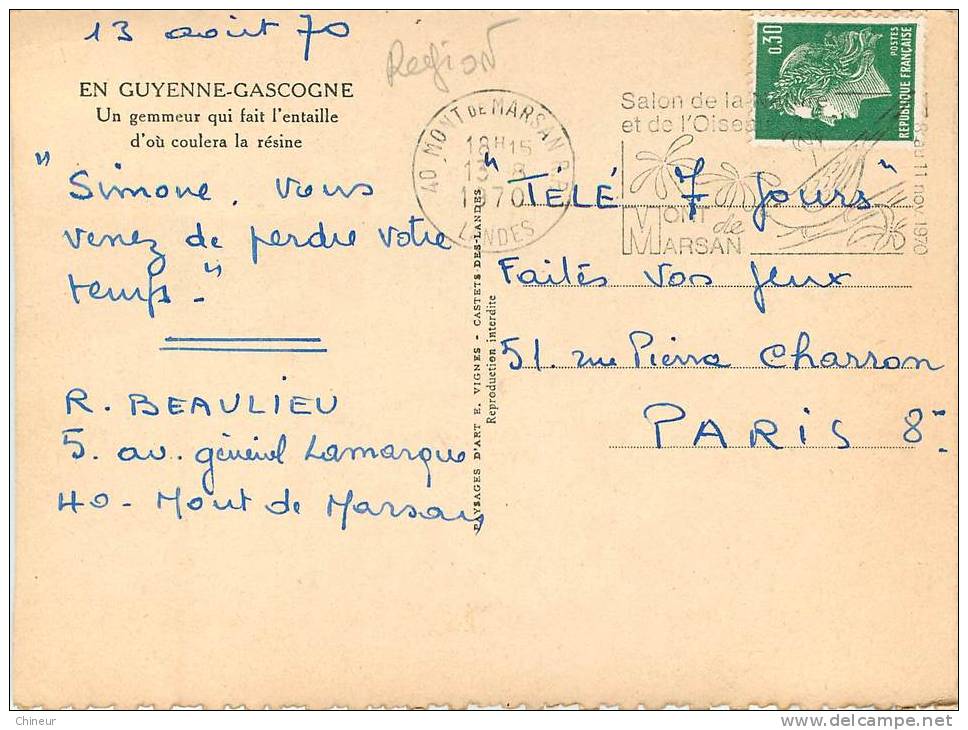 13 août 70
Région
EN GUYENNE-GASCOGNE
Un gemmeur qui fait l'entaille
d'où coulera la résine
"Simone, vous
venez de perdre votre
temps."
R. BEAULIEU
5. av. général Lamarque
40 - Mont de Marsan
PAYSAGES D'ART E. VIGNES - CASTETS DES-LANDES
Reproduction interdite
40 MONT DE MARSAN R.P.
18H15
13-8
1970
LANDES
Salon de la
et de l'Oise
MONT
de
MARSAN
8 au 11 nov. 1970
0,30
POSTES
REPUBLIQUE FRANÇAISE
"TÉLÉ 7 Jours"
Faites vos jeux
51. rue Pierre Charron
PARIS 8e
Chineur
www.delcampe.net